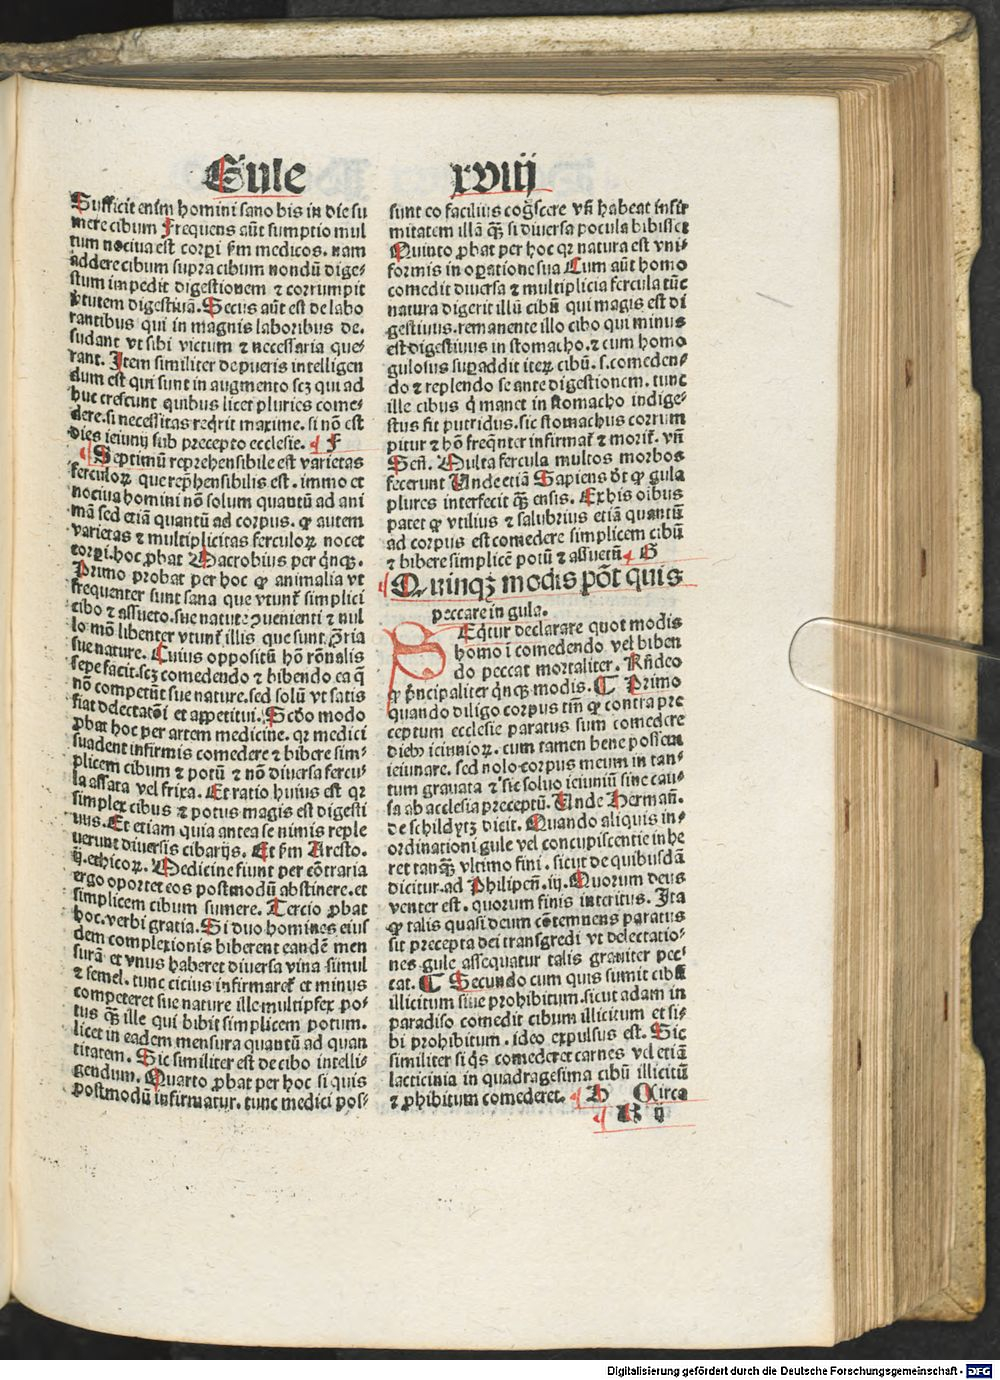 Gule xviij
Sufficit enim homini sano bis in die su
mere cibum Frequens aūt sumptio mul
tum nociua est corpi ẜm medicos. nam
addere cibum supra cibum nondū dige⸗
stum impedit digestionem ⁊ corrumpit
v̓tutem digestiuā. Secus aūt est de labo
rantibus qui in magnis laboribus de⸗
sudant vt sibi victum ⁊ necessaria que⸗
rant. Item similiter de pueris intelligen
dum est qui sunt in augmento scꝫ qui ad
huc crescunt quibus licet pluries come⸗
dere. si necessitas reqͥrit maxime. si nō est
dies ieiunij sub precepto ecclesie. F
Septimū reprehensibile est varietas
ferculoꝝ que rep̄hensibilis est. immo et
nociua homini nō solum quantū ad ani
mā sed etiā quantū ad corpus. ꝙ autem
varietas ⁊ multiplicitas ferculoꝝ nocet
corpi. hoc ꝓbat Macrobius per qͥnqꝫ.
Primo probat per hoc ꝙ animalia vt
frequenter sunt sana que vtunt᷑ simplici
cibo ⁊ assueto. sue nature ꝯuenienti ⁊ nul
lo mō libenter vtunt᷑ illis que sunt ꝯ̄ria
sue nature. Cuius oppositū hō rōnalis
sepe facit. scꝫ comedendo ⁊ bibendo ea q̄
nō competūt sue nature. sed solū vt satis
fiat delectatōi et appetitui. Scd̓o modo
ꝓbat hoc per artem medicine. qr medici
suadent infirmis comedere ⁊ bibere sim⸗
plicem cibum ⁊ potū ⁊ nō diuersa fercu⸗
la assata vel frixa. Et ratio huius est qr
simplex cibus ⁊ potus magis est digesti
uus. Et etiam quia antea se nimis reple
uerunt diuersis cibarijs. Et ẜm Aresto.
ij. ethicoꝝ. Medicine fiunt per cōtraria
ergo oportet eos postmodū abstinere. et
simplicem cibum sumere. Tercio ꝓbat
hoc. verbi gratia. Si duo homines eius
dem complexionis biberent eandē men
surā et vnus haberet diuersa vina simul
⁊ semel. tunc citius infirmaret᷑ et minus
competeret sue nature ille multiplex po⸗
tus qꝫ̄ ille qui bibit simplicem potum.
licet in eadem mensura quantū ad quan
titatem. Sic similiter est de cibo intelli⸗
gendum. Quarto ꝓbat per hoc si quis
postmodū infirmatur. tunc medici pos⸗
sunt eo facilius coḡscere vn̄ habeat infir
mitatem illā qꝫ̄ si diuersa pocula bibisset
Quinto ꝓbat per hoc qr natura est vni⸗
formis in oꝑatione sua Cum aūt homo
comedit diuersa ⁊ multiplicia fercula tūc
natura digerit illū cibū qui magis est di
gestiuus. remanente illo cibo qui minus
est digestiuus in stomacho. ⁊ cum homo
gulosus suꝑaddit iteꝝ cibū. s. comeden⸗
do ⁊ replendo se ante digestionem. tunc
ille cibus q̄ manet in stomacho indige⸗
stus fit putridus. sic stomachus corrum
pitur ⁊ hō freqn̄ter infirmat᷑ ⁊ morit᷑. vn̄
Sen̄. Multa fercula multos morbos
fecerunt Unde etiā Sapiens dt̄ ꝙ gula
plures interfecit qꝫ̄ ensis. Ex his oībus
patet ꝙ vtilius ⁊ salubrius etiā quantū
ad corpus est comedere simplicem cibū
⁊ bibere simplicē potū ⁊ assuetū G
Quinqꝫ modis pōt quis
peccare in gula.
Seqͥtur declarare quot modis
homo ī comedendo vel biben
do peccat mortaliter. Rn̄deo
ꝙ pͥncipaliter qͥnqꝫ modis. Primo
quando diligo corpus tm̄ ꝙ contra pre
ceptum ecclesie paratus sum comedere
dieb ieiunioꝝ. cum tamen bene possem
ieiunare. sed nolo corpus meum in tan⸗
tum grauata ⁊ sic soluo ieiuniū sine cau⸗
sa ab acclesia preceptū. Unde Herman̄.
de schildytz dicit. Quando aliquis in⸗
ordinationi gule vel concupiscentie inhe
ret tanqꝫ̄ vltimo fini. sicut de quibusdā
dicitur. ad Philipen̄. iij. Quorum deus
venter est. quorum finis interitus. Ita
ꝙ talis quasi deum cōtemnens paratus
sit precepta dei transgredi vt delectatio⸗
nes gule assequatur talis grauiter pec⸗
cat. Secundo cum quis sumit cibū
illicitum siue prohibitum. sicut adam in
paradiso comedit cibum illicitum et si⸗
bi prohibitum. ideo expulsus est. Sic
similiter si qͥs comederet carnes vel etiā
lacticinia in quadragesima cibū illicitū
⁊ ꝓhibitum comederet. H Circa
B ij
Digitalisierung gefördert durch die Deutsche Forschungsgemeinschaft - DFG